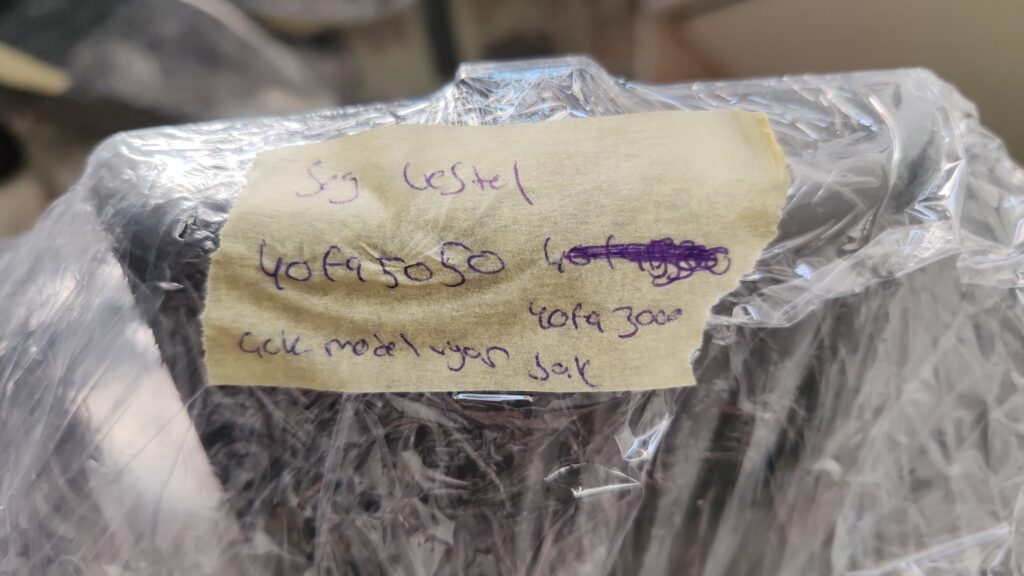 Seg Vestel
40fa5050
40fa3000
çok model uyar bak